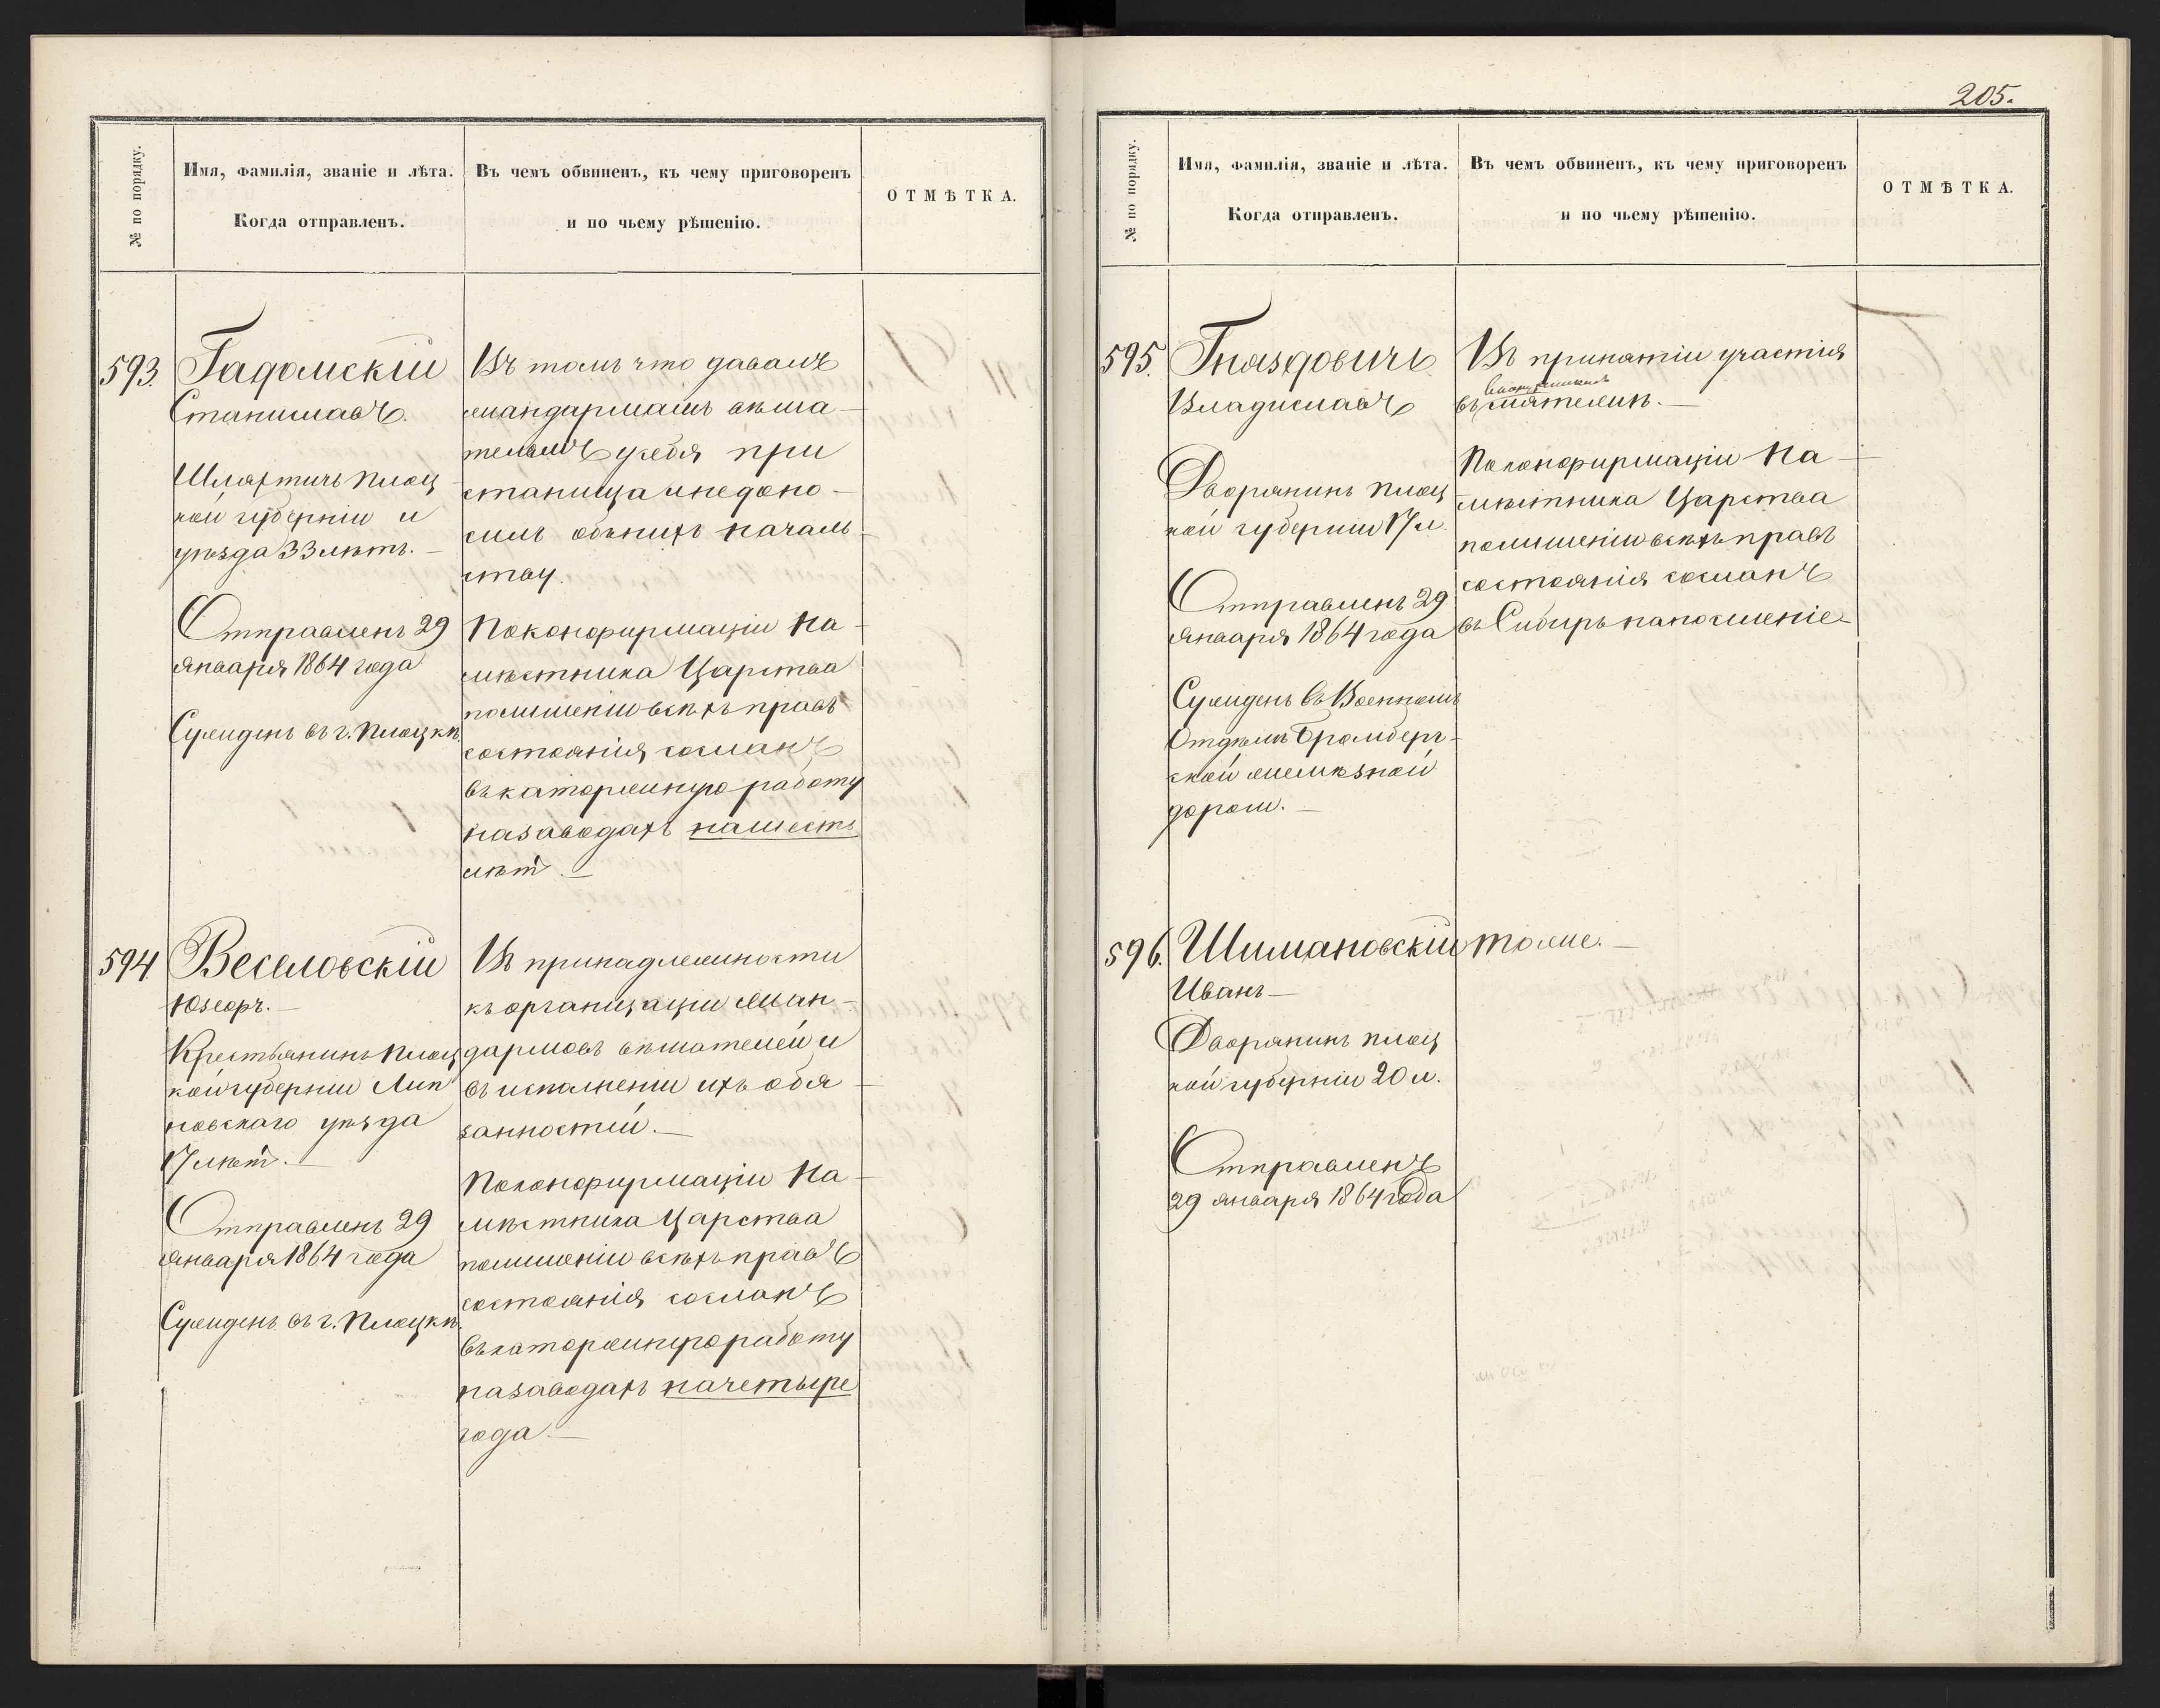 205.
№ по порядку.
Имя, фамилія, званіе и лѣта.
Когда отправленъ.
Въ чемъ обвиненъ, къ чему приговоренъ
и по чьему рѣшенію.
ОТМѢТКА.
593.
Гадомскій
Станиславъ.
Шляхтичь Плоц
кой губерніи и
уѣзда 33 лѣтъ. —
Отправленъ 29
января 1864 года
Сужденъ въ г. Плоцкѣ.
Въ томъ что давалъ
жандармамъ вѣша-
телямъ у себя при
станища и недоно-
силъ объ нихъ началь-
ству.
По конфирмаціи На-
мѣстника Царства
по лишеніи всѣхъ правъ
состоянія сосланъ
въ каторжную работу
на заводахъ на шесть
лѣтъ. —
594.
Веселовскій
Юзефъ. —
Крестьянинъ Плоц
кой губерніи Лип
новскаго уѣзда
17 лѣтъ. —
Отправленъ 29
января 1864 года
Сужденъ въ г. Плоцкѣ.
Въ принадлежности
къ организаціи жан-
дармовъ вѣшателей и
въ исполненіи ихъ обя-
занностей. —
По конфирмаціи На-
мѣстника Царства
по лишеніи всѣхъ правъ
состоянія сосланъ
въ каторжную работу
на заводахъ на четыре
года. —
№ по порядку.
Имя, фамилія, званіе и лѣта.
Когда отправленъ.
Въ чемъ обвиненъ, къ чему приговоренъ
и по чьему рѣшенію.
ОТМѢТКА.
595.
Гняздовичъ
Владиславъ
Дворянинъ Плоц
кой губерніи 17 л.
Отправленъ 29
января 1864 года
Сужденъ въ Военномъ
Отдѣлѣ Бромберг-
ской желѣзной
дороги. —
Въ принятіи участія
въ мятежѣ. —
По конфирмаціи На-
мѣстника Царства
по лишеніи всѣхъ правъ
состоянія сосланъ
въ Сибирь на поселеніе
596.
Шимановскій
Иванъ —
Дворянинъ Плоц
кой губерніи 20 л.
Отправленъ
29 января 1864 года
тоже. —